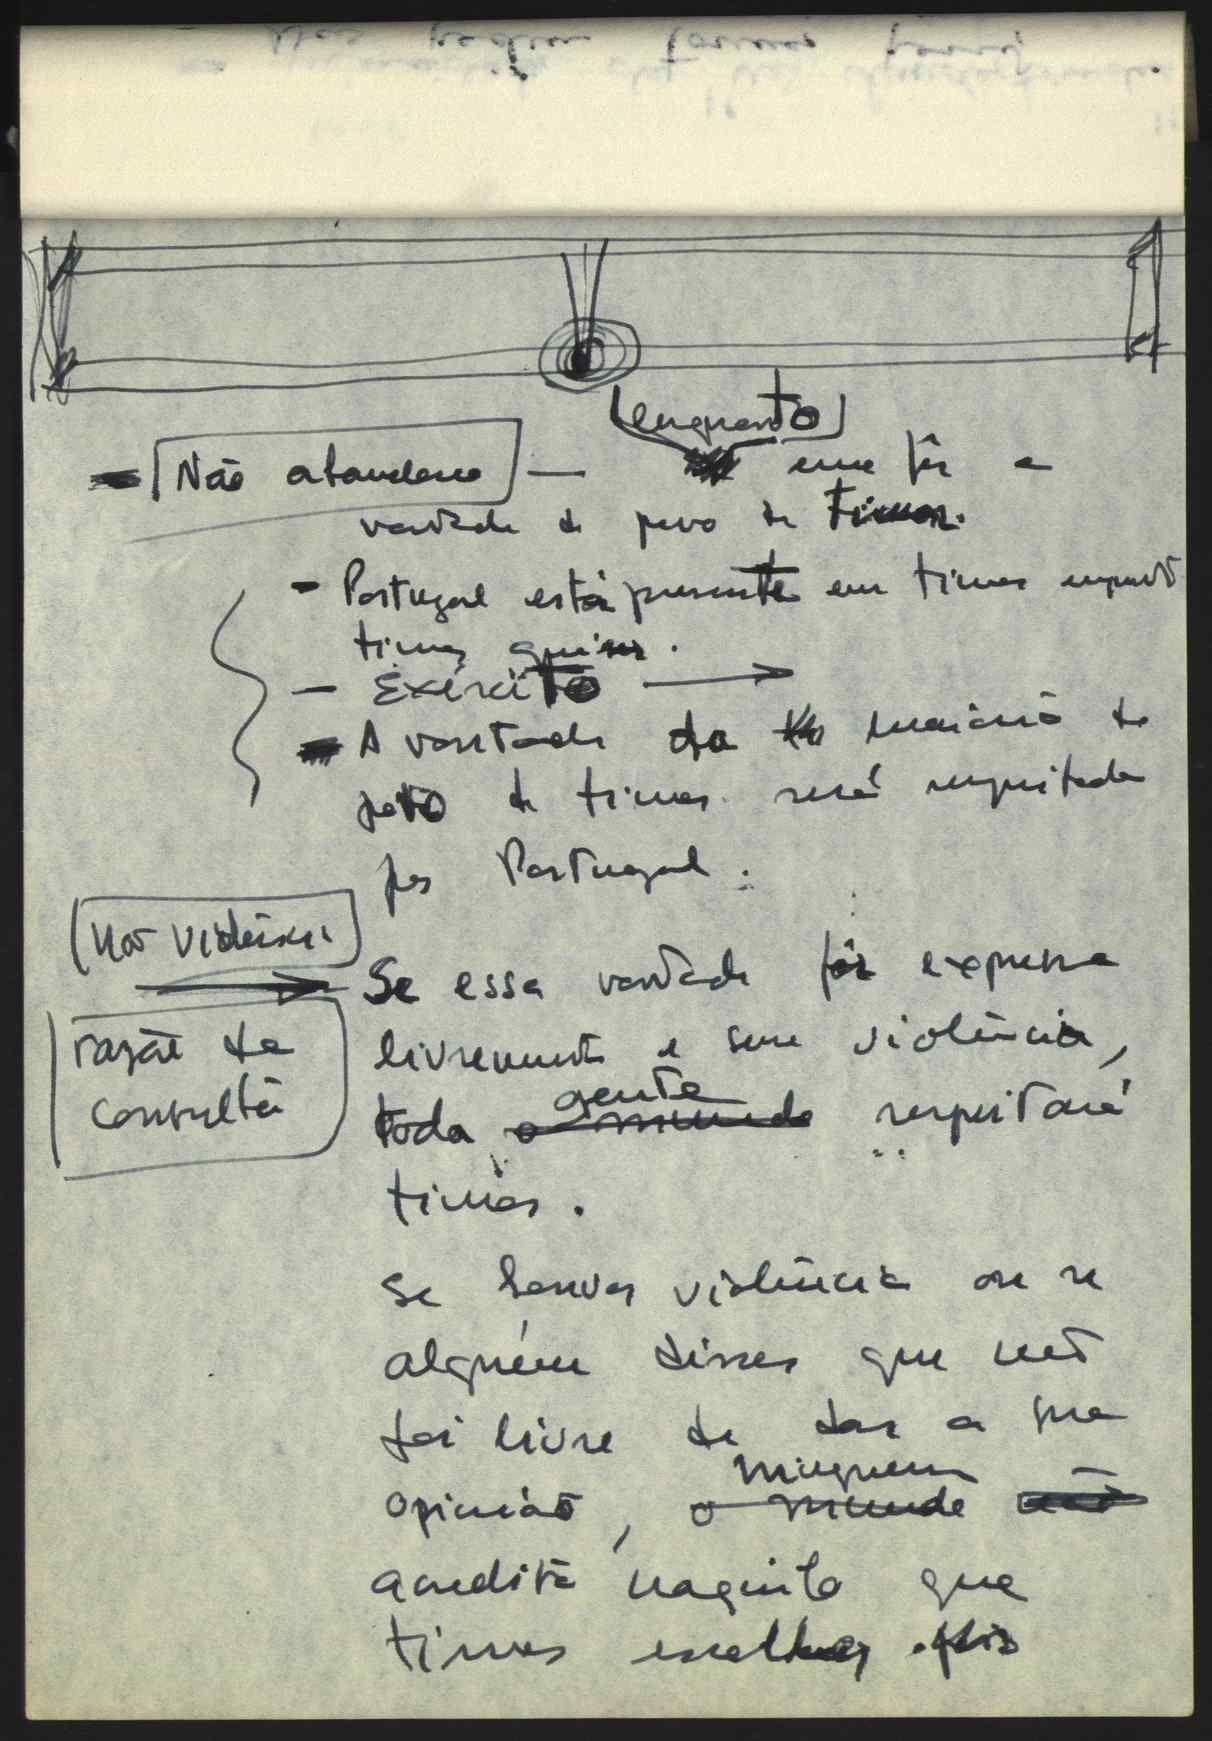 (enquanto)
Não abandono — essa fôr a
vontade do povo de Timor.
- Portugal está presente em Timor enquanto
Timor quiser.
- Exército →
- A vontade da maioria do
povo de Timor será respeitada
por Portugal.
não violência
Se essa vontade fôr expressa
razão da
livremente e sem violência,
consulta
gente
toda o mundo respeitará
Timor.
Se houver violência ou se
alguém disser que não
foi livre de dar a sua
opinião, o mundo não
ninguem
acredita naquilo que
Timor escolher.